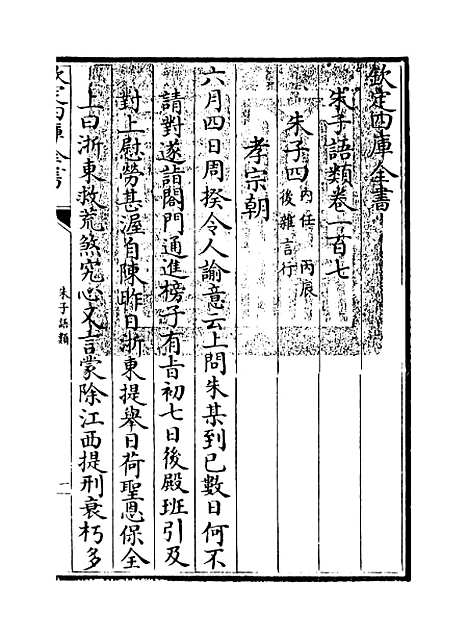 欽定四庫全書
朱子語類卷一百七
朱子四 內任 丙辰後雜言行
孝宗朝
六月四日周揆令人諭意云上問朱某到已數日何不
請對遂詣閤門通進榜子有㫖初七日後殿班引及
對上慰勞甚渥自陳昨日浙東提舉日荷聖恩保全
上曰浙東救荒煞究心又言蒙除江西提刑衰朽多
欽定四庫全書
朱子語類